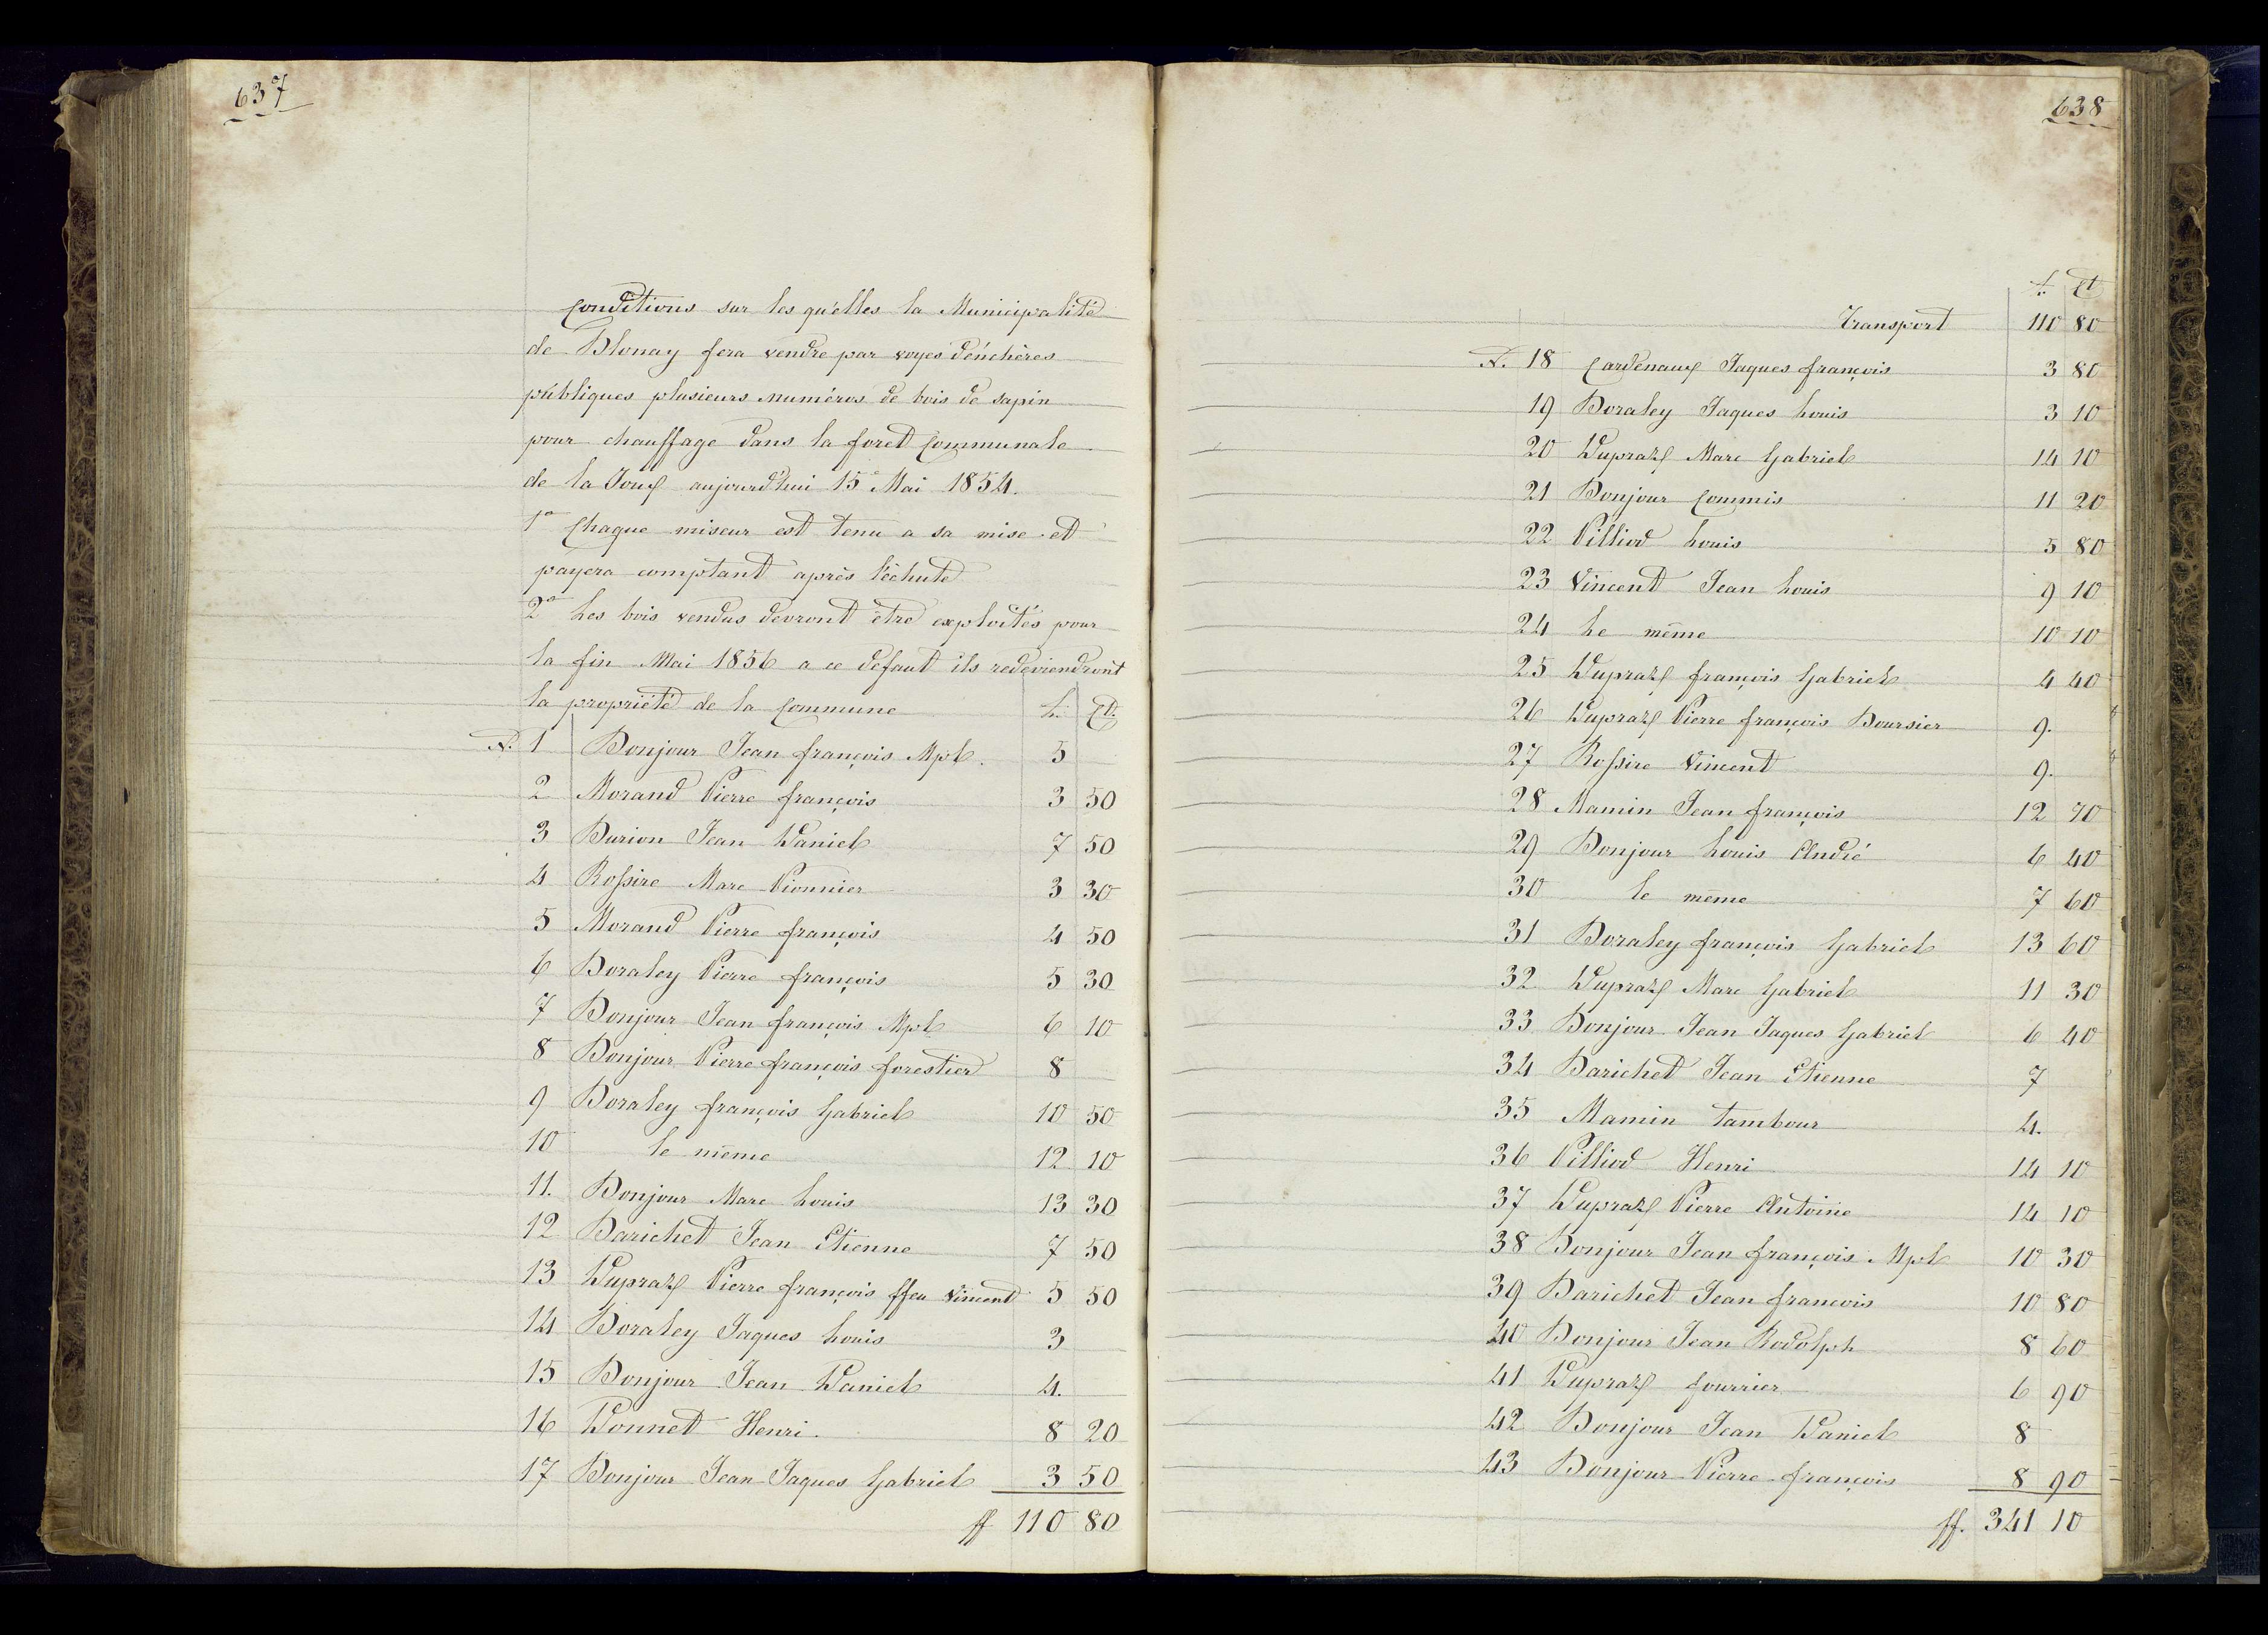 637
Conditions sur les qu'elles la Municipalité
de Blonay fera vendre par voyes d'énchères
públiques plusieurs numéros de bois de sapin
pour chauffage dans la foret Communale
de la Joux aujourd'hui 15e Mai 1854.
1° Chaque miseur est tenu a sa mise et
payera comptant après l'échute
2° Les bois vendus devront être exploités pour
la fin Mai 1856 a ce defaut ils redeviendront
la propriété de la Commune fr. Ct.
N. 1 Bonjour Jean françois Mpl. 5
2 Morand Pierre françois 3 50
3 Burion Jean Daniel 7 50
4 Rossire Marc Pionnier 3 30
5 Morand Pierre françois 4 50
6 Boraley Pierre françois 5 30
7 Bonjour Jean françois Mpl 6 10
8 Bonjour Pierre françois forestier 8
9 Boraley françois Gabriel 10 50
10 le même 12 10
11. Bonjour Marc Louis 13 30
12 Barichet Jean Etienne 7 50
13 Dupraz Pierre françois ffeu Vincent 5 50
14 Boraley Jaques Louis 3
15 Bonjour Jean Daniel 4.
16 Donnet Henri. 8 20
17 Bonjour Jean Jaques Gabriel 3 50
ff 110 80
638
f. Ct
Transport 110 80
N. 18 Cardenaux Jaques françois 3 80
19 Boraley Jaques Louis 3 10
20 Dupraz Marc Gabriel 14 10
21 Bonjour Commis 11 20
22 Pilliod Louis 5 80
23 Vincent Jean Louis 9 10
24 Le même 10 10
25 Dupraz françois Gabriel 4 40
26 Dupraz Pierre françois Boursier 9.
27 Rossire Vincent 9.
28 Mamin Jean françois 12 70
29 Bonjour Louis André 6 40
30 le même 7 60
31 Boraley françois Gabriel 13 60
32 Dupraz Marc Gabriel 11 30
33 Bonjour Jean Jaques Gabriel 6 40
34 Barichet Jean Etienne 7
35 Mamin tambour 4.
36 Pilliod Henri 14 10
37 Dupraz Pierre Antoine 14 10
38 Bonjour Jean françois Mpl 10 30
39 Barichet Jean francois 10 80
40 Bonjour Jean Rodolph 8 60
41 Dupraz fourrier 6 90
42 Bonjour Jean Daniel 8
43 Bonjour Pierre françois 8 90
ff. 341 10